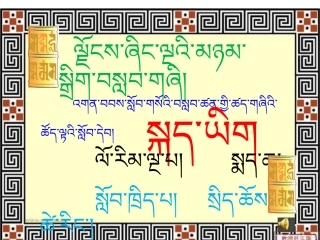 ལྗོངས་ཞིང་ལྔའི་མཉམ་
སྒྲིག་བསླབ་གཞི།
འགན་བབས་སློབ་གསོའི་བསླབ་ཚན་གྱི་ཚད་གཞིའི་
ཚོད་ལྟའི་སློབ་དེབ།
སྐད་ཡིག
ལོ་རིམ་ལྔ་པ། སྨད་ཆ
སློབ་ཁྲིད་པ། སྲིད་ཆོས
ཚེ་རིང་།